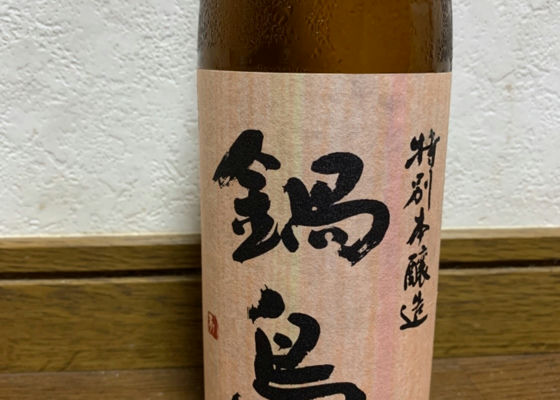 特別本醸造
鍋島